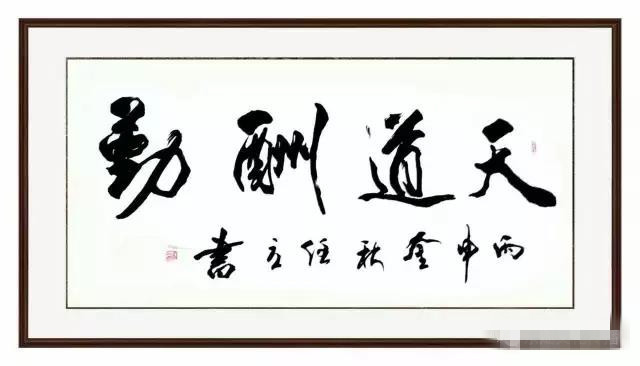 天道酬勤
丙申金秋任書